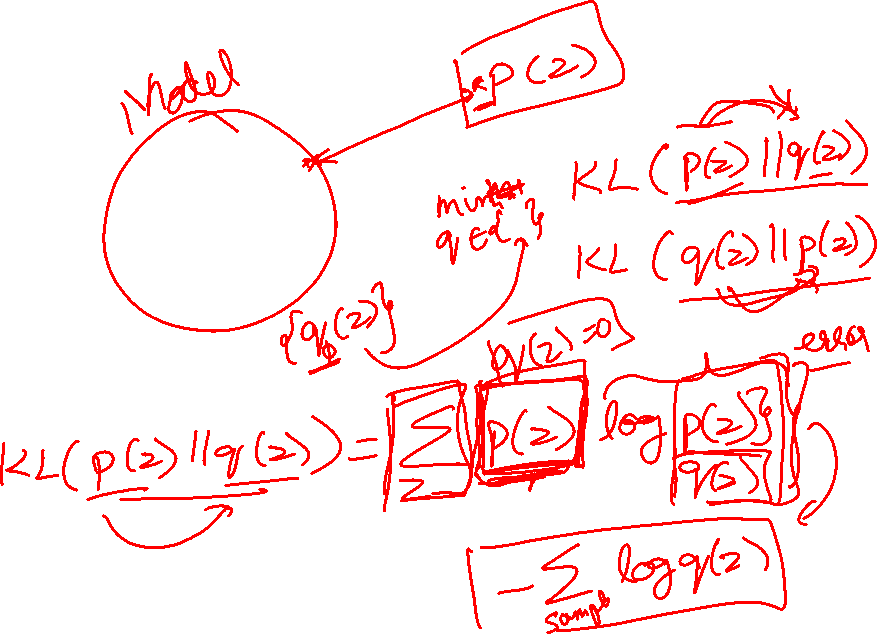 Model
p(z)
KL(p(z)||q(z))
min
q ∈ { }
KL(q(z)||p(z))
{q_φ(z)}
q(z)=0
error
KL(p(z)||q(z)) = Σ_z p(z) log p(z)/q(z)
-Σ_sample log q(z)